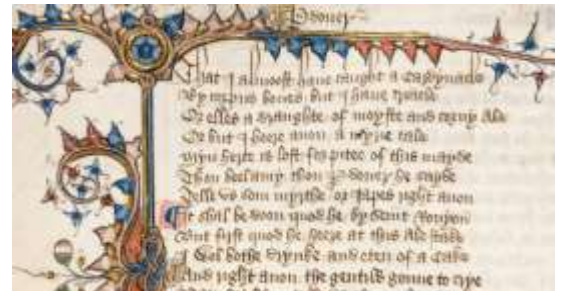 ꝑdoner
That I almoost haue caught a Cardynacle
By corpus bones but I haue triacle
Or elles a draughte of moyste and corny Ale
Or but I heere anon a myrie tale
Myn herte is lost for pitee of this mayde
Thou beelamy thou ꝑdoner he sayde
Telle vs som myrthe or Iapes right anon
It shal be doon quod he by Seint Ronyon
But first quod he heere at this Ale stake
I wol bothe drynke and eten of a Cake
And right anon the gentils gonne to crye